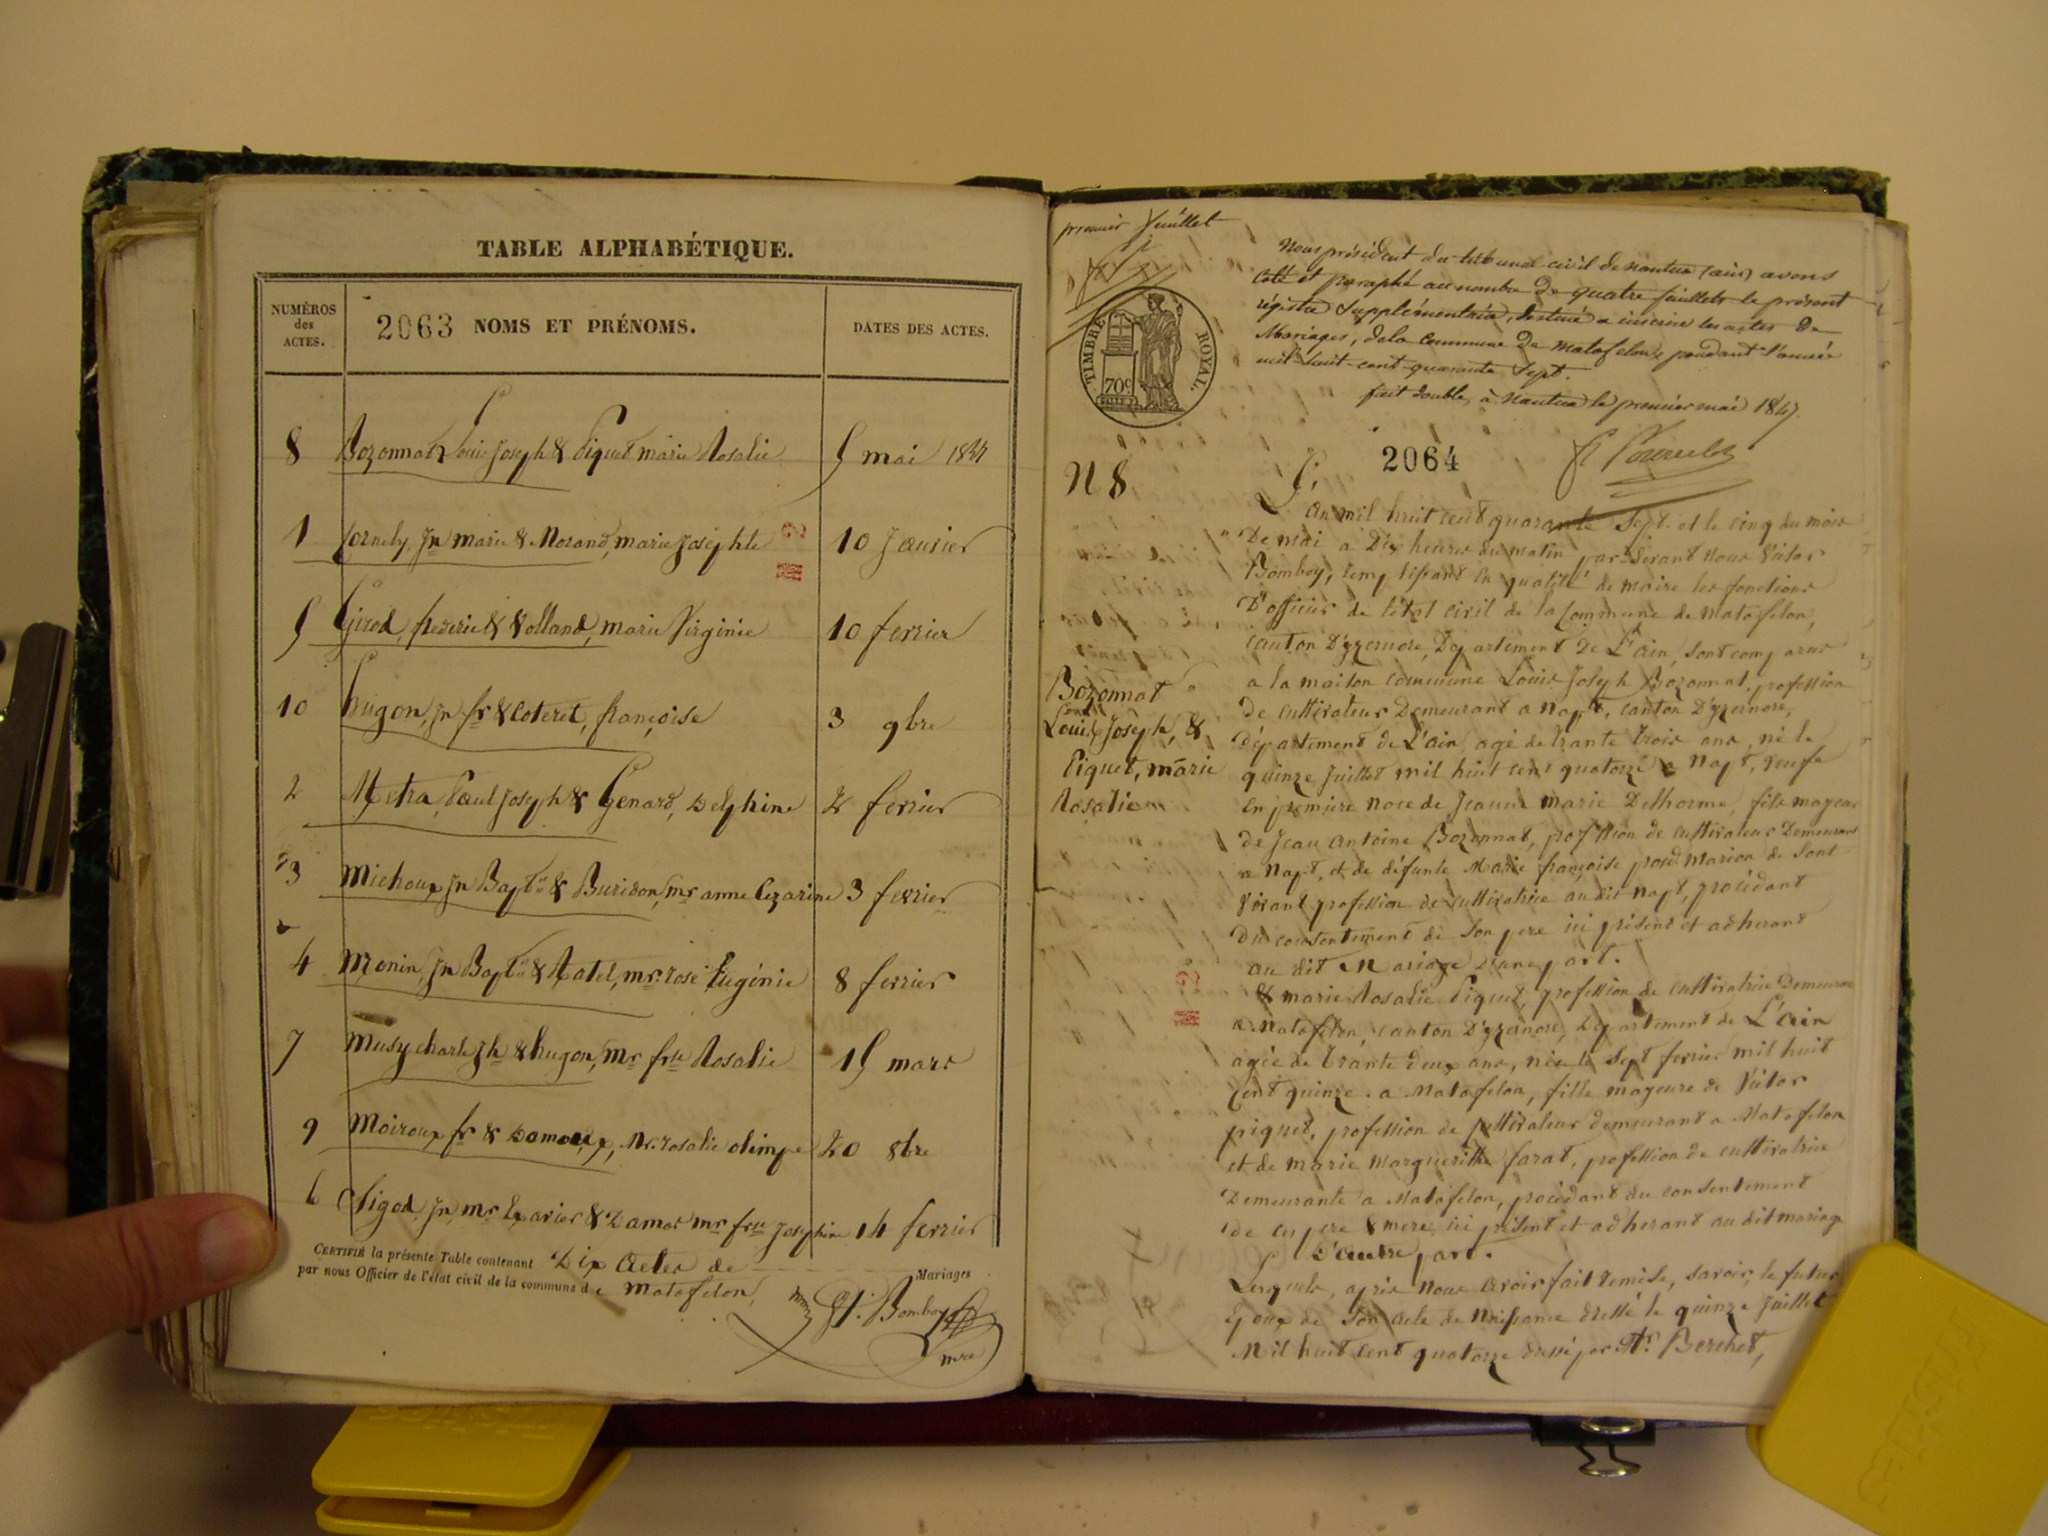 TABLE ALPHABÉTIQUE.
NUMÉROS
des
ACTES.
2063 NOMS ET PRÉNOMS.
DATES DES ACTES.
8 Bozonnat Louis Joseph & Piquet marie Rosalie 5 mai 1847
1 Cornely, Jn marie & Morand, marie Josephte 10 Janvier
5 Girod, frederic & Volland, marie Virginie 10 fevrier
10 hugon, Jn fr & Coteret, françoise 3 9bre
2 Metra, Paul Joseph & Genard, Delphine 2 fevrier
3 Michoux, Jn Bapte & Buridon, mie anne Cezarine 3 fevrier
4 Monin, Jn Bapte & Ratel, mie rose Eugénie 8 fevrier
7 Musy charle Jh & hugon, mie frse Rosalie 15 mars
9 Moiroux fr & Damoux, Mie rosalie olimpe 20 8bre
6 Sigod, Jn mie Xavier & Damas mie frse Josephine 14 fevrier
CERTIFIÉ la présente Table contenant Dix Actes de Mariages
par nous Officier de l'état civil de la commune de Matafelon,
Bomboy
mre
premier feuillet
TIMBRE ROYAL.
70c
Nous président du tribunal civil de Nantua (ain) avons
coté et paraphé au nombre de quatre feuillets le présent
régistre supplémentaire, destiné a inscrire les actes de
Mariages, de la Commune de Matafelon, pendant l'année
mil-huit-cent-quarante Sept.
fait double, à Nantua le premier mai 1847.
2064
N 8
L'an mil huit cent quarante Sept. et le cinq du mois
De mai a Dix heures du matin par devant nous Victor
Bomboy, remplissant en qualité de maire les fonctions
D'officier de l'état civil de la Commune de Matafelon,
canton D'yzernore, Département De L'ain, sont comparus
a la maison commune Louis Joseph Bozonnat, profession
de cultivateur Demeurant a Napt, canton D'yzernore,
Département de L'ain, agé de trante trois ans, né le
quinze Juillet mil huit cent quatorze a Napt, veuf
en première nose de Jeanne marie Delhorme, fils mageur
de Jean Antoine Bozonnat, profession de cultivateur Demeurant
a Napt, et de défunte Marie françoise marion de Sont
vivant profession de cultivatrice au dit Napt, procédant
Du consentement de Son pere ici présent et adherant
au dit Mariage D'une part.
& marie Rosalie Piquet, profession de cultivatrice Demeurant
a Matafelon, canton D'yzernore, Département de L'ain
agée de trante deux ans, née le Sept fevrier mil huit
Cent quinze. a Matafelon, fille mageure de Victor
piquet, profession de cultivateur demeurant a Matafelon
et de marie Margueritte farat, profession de cultivatrice
Demeurante a Matafelon, procédant du consentement
de ses pere & mere ici présent et adherant au dit mariage
D'autre part.
Lesquels, après nous avoir fait remise, savoir, le futur
Epoux de Son acte de Naissance dressé le quinze Juillet
Mil huit cent quatorze dressé par Mr. Berchet,
Bozonnat
Louis Joseph, &
Piquet, marie
Rosalie